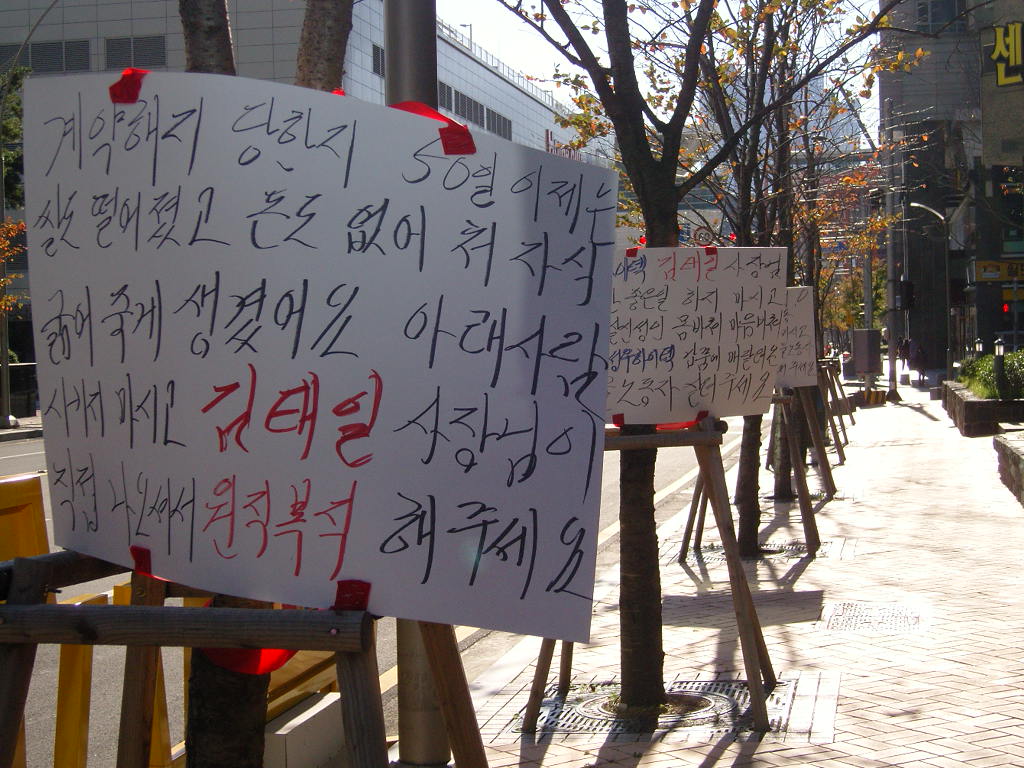 계약해지 당한지 50일 이제는
쌀도 떨어졌고 돈도 없어 처자식
굶어 죽게 생겼어요 아래사람
시키지 마시고 김태일 사장님이
직접 나오셔서 원직복직 해주세요
김태일 사장님
좋은일 하지 마시고
몸바쳐 마음바쳐
노동자 살려주세요
센